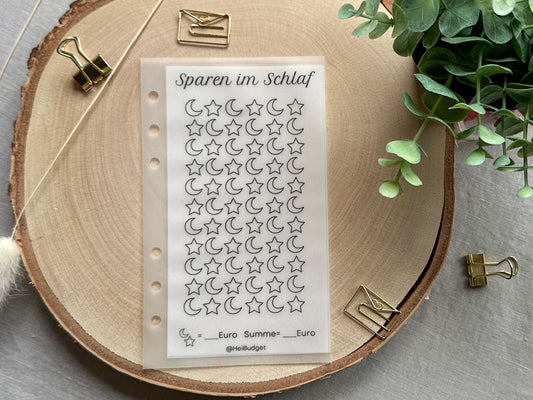 Sparen im Schlaf
= ___Euro Summe= ___Euro
@HeiBudget